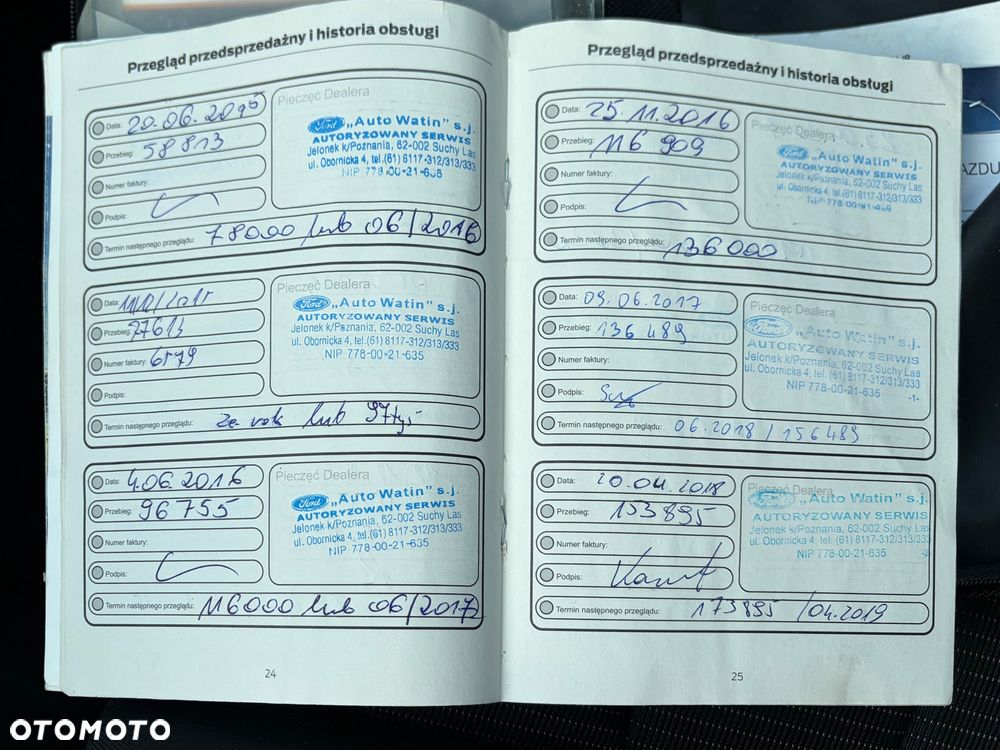 Przegląd przedsprzedażny i historia obsługi
Data: 20.06.2015
Przebieg: 58813
Numer faktury:
Podpis:
Termin następnego przeglądu: 78000 lub 06/2016
Pieczęć Dealera
Ford „Auto Watin" s.j.
AUTORYZOWANY SERWIS
Jelonek k/Poznania, 62-002 Suchy Las
ul. Obornicka 4, tel.(61) 8117-312/313/333
NIP 778-00-21-635
Data:
Przebieg: 77613
Numer faktury: 6579
Podpis:
Termin następnego przeglądu: Za rok lub 97tyś
Pieczęć Dealera
Ford „Auto Watin" s.j.
AUTORYZOWANY SERWIS
Jelonek k/Poznania, 62-002 Suchy Las
ul. Obornicka 4, tel.(61) 8117-312/313/333
NIP 778-00-21-635
Data: 4.06.2016
Przebieg: 96755
Numer faktury:
Podpis:
Termin następnego przeglądu: 116000 lub 06/2017
Pieczęć Dealera
Ford „Auto Watin" s.j.
AUTORYZOWANY SERWIS
Jelonek k/Poznania, 62-002 Suchy Las
ul. Obornicka 4, tel.(61) 8117-312/313/333
NIP 778-00-21-635
24
Przegląd przedsprzedażny i historia obsługi
Data: 25.11.2016
Przebieg: 116 909
Numer faktury:
Podpis:
Termin następnego przeglądu: 136000
Pieczęć Dealera
Ford „Auto Watin" s.j.
AUTORYZOWANY SERWIS
Jelonek k/Poznania, 62-002 Suchy Las
ul. Obornicka 4, tel.(61) 8117-312/313/333
Data: 09.06.2017
Przebieg: 136 489
Numer faktury:
Podpis:
Termin następnego przeglądu: 06.2018 / 156489
Pieczęć Dealera
Ford „Auto Watin" s.j.
AUTORYZOWANY SERWIS
Jelonek k/Poznania, 62-002 Suchy Las
ul. Obornicka 4, tel.(61) 8117-312/313/333
NIP 778-00-21-635
-1-
Data: 20.04.2018
Przebieg: 153895
Numer faktury:
Podpis:
Termin następnego przeglądu: 173895 /04.2019
Pieczęć Dealera
Ford „Auto Watin" s.j.
AUTORYZOWANY SERWIS
Jelonek k/Poznania, 62-002 Suchy Las
ul. Obornicka 4, tel.(61) 8117-312/313/333
NIP 778-00-21-635
25
AZDU
OTOMOTO